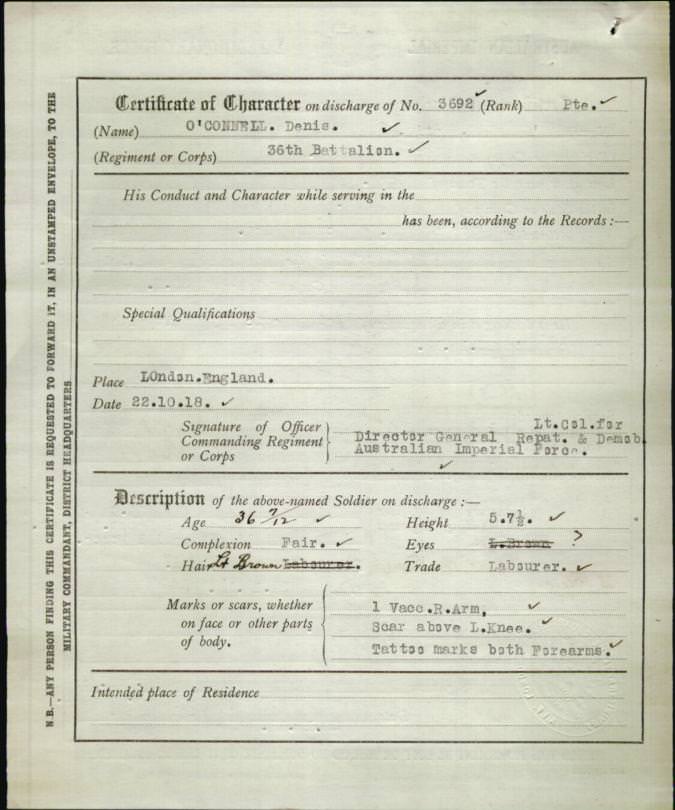 Certificate of Character on discharge of No. 3692 (Rank) Pte.
(Name) O'CONNELL. Denis.
(Regiment or Corps) 36th Battalion.
His Conduct and Character while serving in the
has been, according to the Records :—
Special Qualifications
Place LOndon.England.
Date 22.10.18.
Signature of Officer Commanding Regiment or Corps
Lt.Col.for
Director General Repat. & Demob.
Australian Imperial Force.
Description of the above-named Soldier on discharge :—
Age 36 7/12 Height 5.7½.
Complexion Fair. Eyes L.Brown ?
Hair Lt Brown Labourer. Trade Labourer.
Marks or scars, whether on face or other parts of body.
1 Vacc.R.Arm.
Scar above L.Knee.
Tattoo marks both Forearms.
Intended place of Residence
N.B.—ANY PERSON FINDING THIS CERTIFICATE IS REQUESTED TO FORWARD IT, IN AN UNSTAMPED ENVELOPE, TO THE
MILITARY COMMANDANT, DISTRICT HEADQUARTERS.